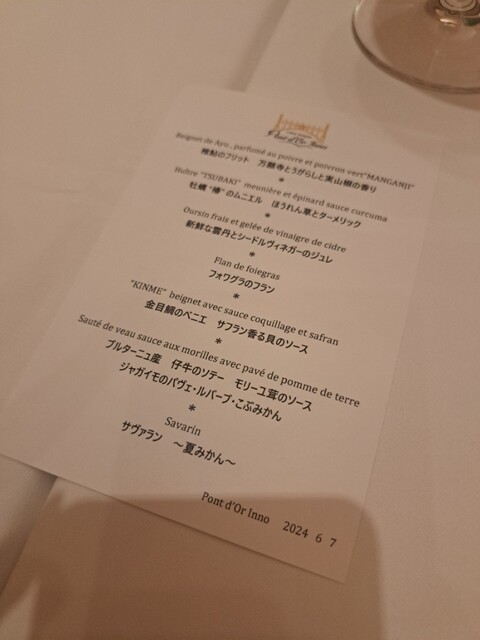 Pont d'Or Inno
Beignet de Ayu, parfumé au poivre et poivron vert"MANGANJI"
稚鮎のフリット 万願寺とうがらしと実山椒の香り
*
Huître "TSUBAKI" meunière et épinard sauce curcuma
牡蠣 "椿" のムニエル ほうれん草とターメリック
*
Oursin frais et gelée de vinaigre de cidre
新鮮な雲丹とシードルヴィネガーのジュレ
*
Flan de foiegras
フォワグラのフラン
*
"KINME" beignet avec sauce coquillage et safran
金目鯛のベニエ サフラン香る貝のソース
*
Sauté de veau sauce aux morilles avec pavé de pomme de terre
ブルターニュ産 仔牛のソテー モリーユ茸のソース
ジャガイモのパヴェ・ルバーブ・こぶみかん
*
Savarin
サヴァラン ～夏みかん～
Pont d'Or Inno 2024 6 7